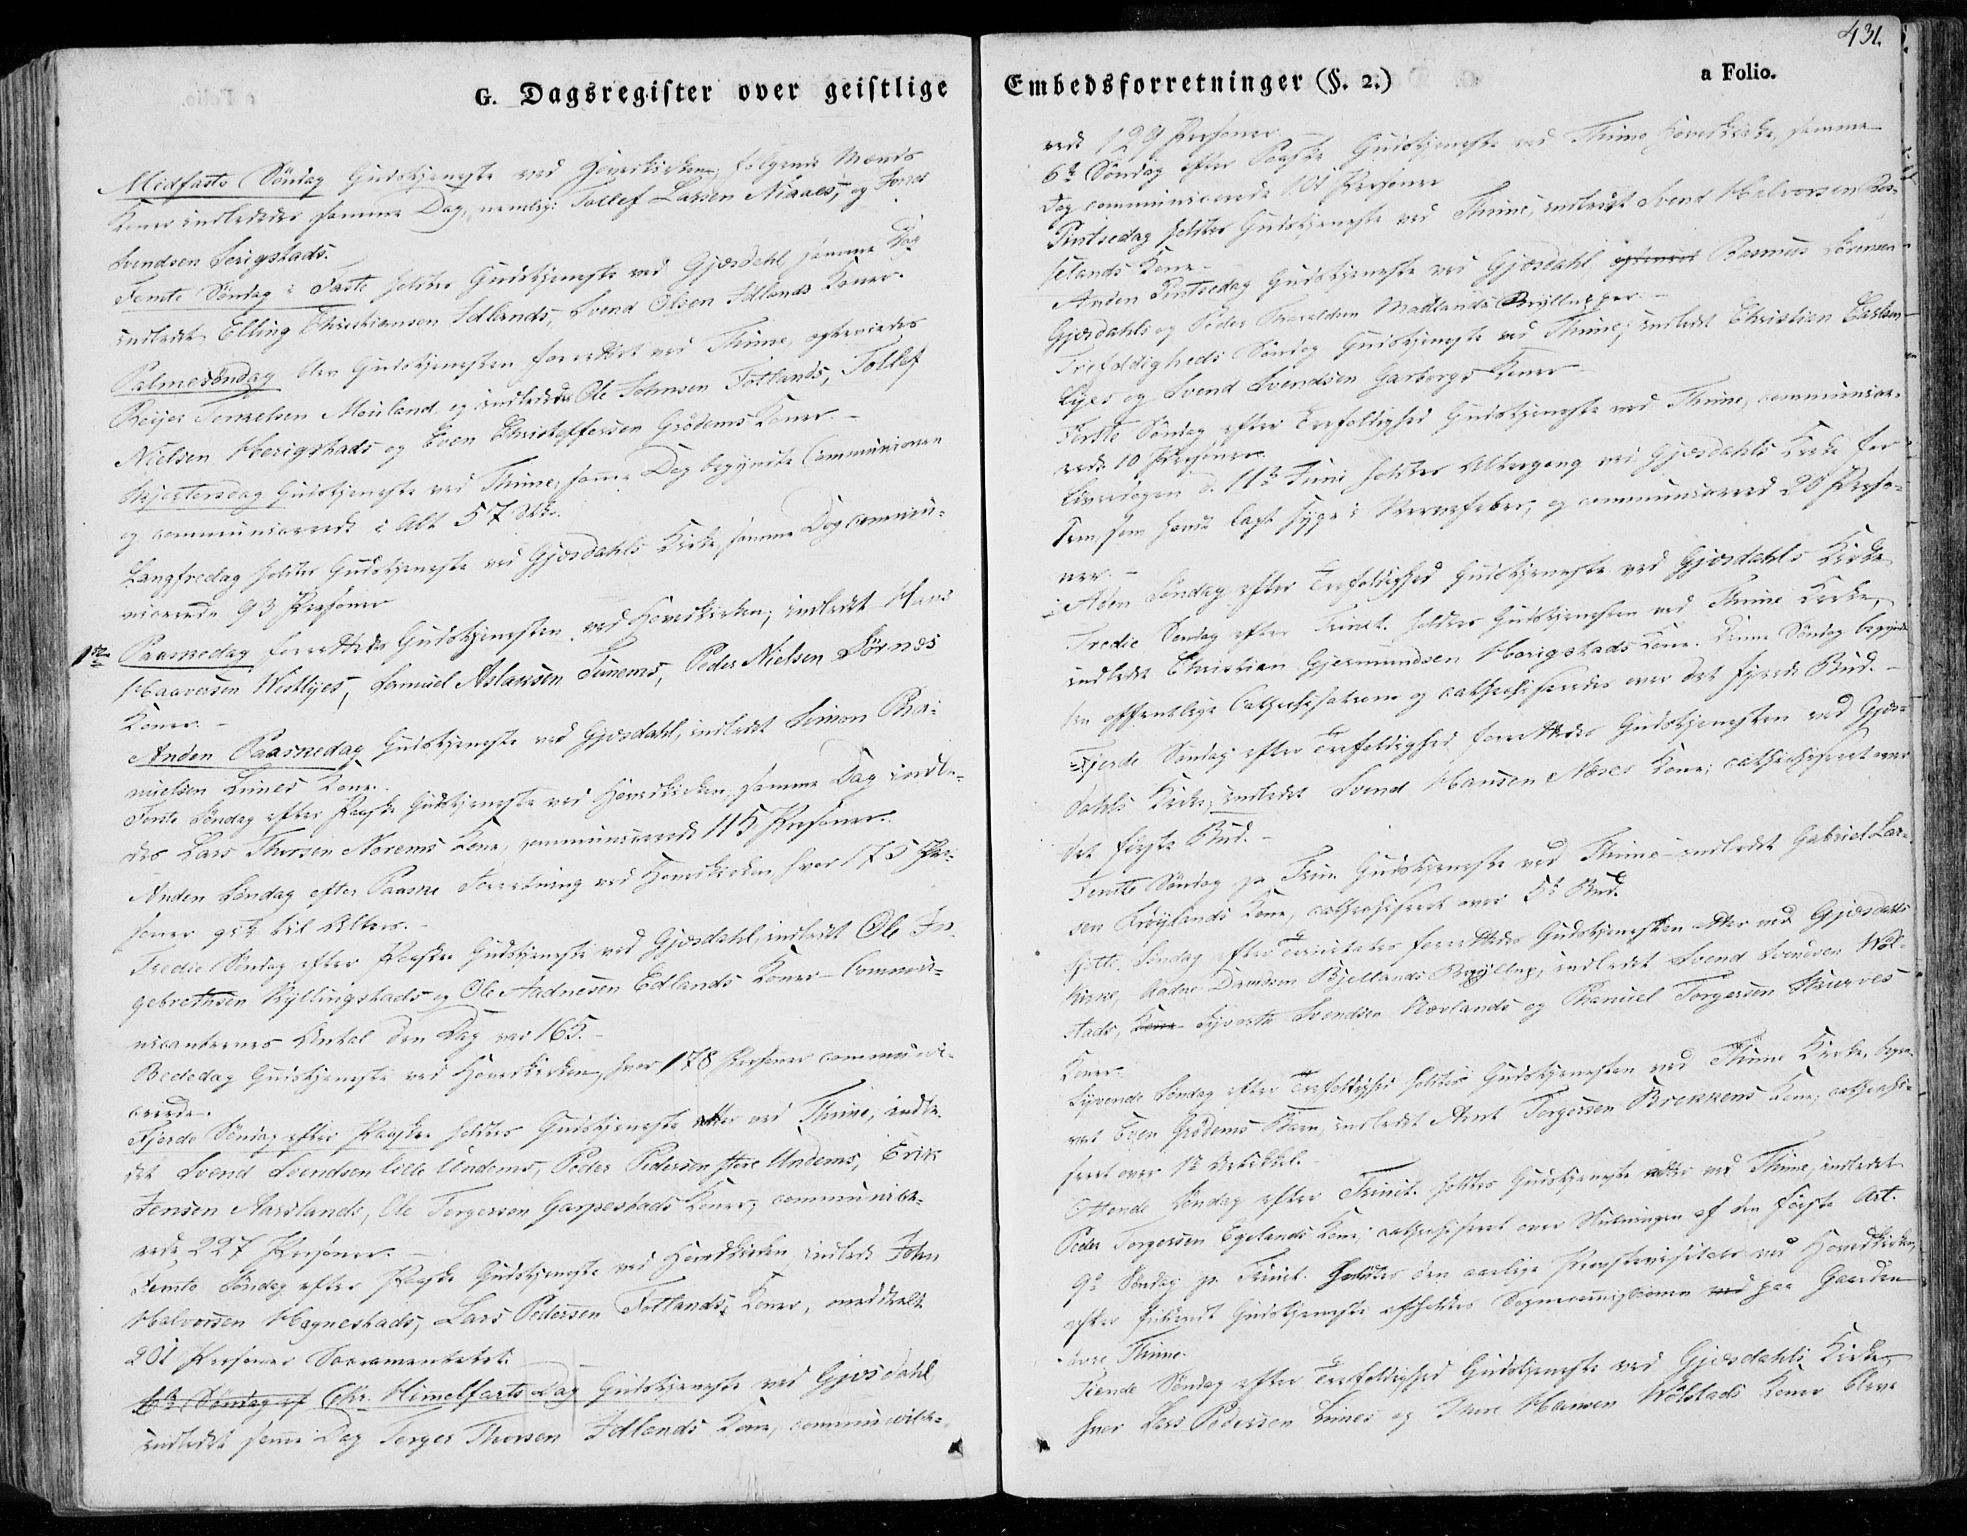 G. Dagsregister over geistlige
Midfasto Söndag Gudstjeneste ved Hovedkirken, følgende Mænds
Koner indlededes samme Dag, nemlig: Tollef Larsen Niaaes, og Jonas
Svendsen Serigstads.
Femte Söndag i Faste holdtes Gudstjeneste ved Gjæsdahl, samme Dag
indledt Elling Christiansen Idlands, Svend Olsen Idlands Koner.
Palmesöndag blev Gudstjenesten forrettet ved Thime, ogteviedes
Reijer Tennelsen Mauland og indledede Ole Johnsen Fotlands, Tollef
Nielsen Herigstads og Even Christoffersen Grödems Koner. –
Skjertorsdag Gudstjeneste ved Thime, samme Dag begyndte Communionen
og communicerede i Alt 57
Langfredag holdtes Gudstjeneste ved Gjæsdahls Kirke samme Dag commu-
nicerede 93 Personer
1ste Paasnedag forrettedes Gudstjenesten ved Hovedkirken, indledet Hans
Haaversen Westlyes, Samuel Aslaksen Tunems, Peder Nielsen Sörnes
Koner. –
Anden Paasnedag Gudstjeneste ved Gjæsdahl, indledt Simon
Limes Kone.
Første Söndag efter Paaske Gudstjeneste ved Hovedkirken, samme Dag indle-
des Lars Thorsen Norems Kone, communicerede 115 Personer.
Anden Söndag efter Paasne Forretning ved Hovedkirken hvor 175 Per-
soner gik til Alters. –
Tredie Söndag efter Paaske Gudstjeneste ved Gjæsdahl, indledt Ole In-
gebrethsen Kyllingstads og Ole Aadnesen Edlands Koner – Commu-
nicanternes Antal den Dag var 165. –
Bededag Gudstjeneste ved Hovedkirken, hvor 178 Personer communi-
cerede.
Fjerde Söndag efter Paaske holdtes Gudstjeneste atter ved Thime, indle-
det Svend Svendsen lille Undems, Peder Pedersen store Undems, Erik
Jensen Aarslands, Ole Torgersen Garpestads Koner, communice-
rede 227 Personer. –
Femte Söndag efter Paaske Gudstjeneste ved Hovedkirken, indledt John
Halvorsen Hognestads, Lars Pedersen Fotlands, Koner, meddeelt
201 Personer Sacramentet.
6te Söndag ef Chr. Himelfarts Dag Gudstjeneste ved Gjæsdahl
indledt samme Dag Torger Thorsen Idlands Kone, communicere-
431.
Embedsforretninger (§. 2.)
a Folio.
rede 129 Personer
6te Söndag efter Paaske Gudstjeneste ved Thime Hovedkirke, samme
Dag communicerede 101 Personer
Pintsedag holdtes Gudstjeneste ved Thime, indledt Svend Halvorsen Ros-
selands Kone –
Anden Pintsedag Gudstjeneste ved Gjæsdahl Rasmus Sörensen
Gjæsdahls og Peder Tharaldsen Madlands Bryllupper. –
Trefoldigheds Söndag Gudstjeneste ved Thime, indledt Christian Carlsen
Lyes og Svend Svendsen Garborgs Koner
Første Söndag efter Trefoldighed Gudstjeneste ved Thime, communice-
rede 10 Personer.
Løverdagen d. 11te Juni holdtes Altergang ved Gjæsdahls Kirke for
Dem som havde lagt syge i Nervefeber, og communicerede 20 Perso-
ner. –
Anden Söndag efter Trefoldighed Gudstjeneste ved Gjæsdahls Kirke
Tredie Söndag efter Trinit. holdtes Gudstjenesten ved Thime Kirke,
indledt Christian Gjermundsen Herigstads Kone. Denne Söndag begyndte
den offentlige Catechisation og catechiseredes over det fjerde Bud. –
Fjerde Söndag efter Trefoldighed forrettedes Gudstjenesten ved Gjæs-
dahls Kirke, indledet Svend Hansen Næses Kone; catechiseret over
det første Bud. –
Femte Söndag p. Trin. Gudstjeneste ved Thime indledt Gabriel Lar-
sen Frøylands Kone, catechiseret over 5te Bud.
Sjette Söndag efter Trinitatis forrettedes Gudstjenesten atter ved Gjæsdahls
Kirke, Aadne Davidsen Bjellands Bryllup, indledet Svend Svendsen Wöl-
stads, Kone Syvert Svendsen Nærlands og Thanuel Torgersen
Koner.
Syvende Söndag efter Trefoldighed holdtes Gudstjenesten ved Thime Kirke, begra-
vet Even Grödems Barn, indledt Arnt Torgersen Brekkens Kone, catechi-
seret over 1te Artikkel. –
Ottende Söndag efter Trinit. holdtes Gudstjeneste atter ved Thime, indledet
Peder Torgersen Egelands Kone; catechiseret over Slutningen af den første Art.
9de Söndag p. Trinit. holdtes den aarlige Provstevisitats ved Hovedkirken,
efter fuldendt Gudstjeneste afholdtes Sognecommissionen ved paa Gaarden
övre Thime.
Tiende Söndag efter Trefoldighed Gudstjeneste ved Gjæsdahls Kirke,
hvor Lars Pedersen Limes og Thore Hansen Wölstads Koner bleve